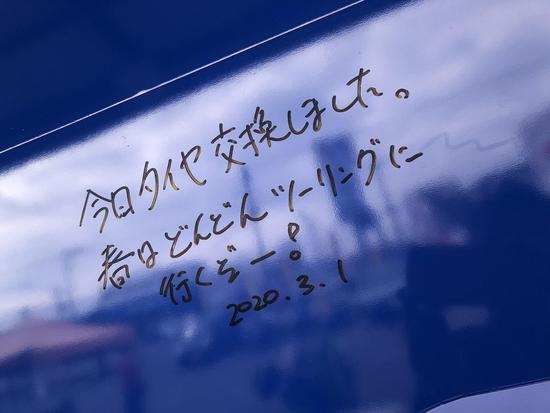 今日タイヤ交換しました。
春はどんどんツーリングに
行くぞー!
2020.3.1